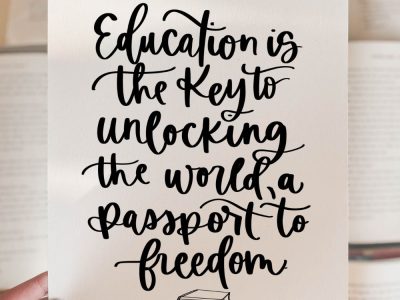 Education is
the Key to
unlocking
the world, a
passport to
freedom